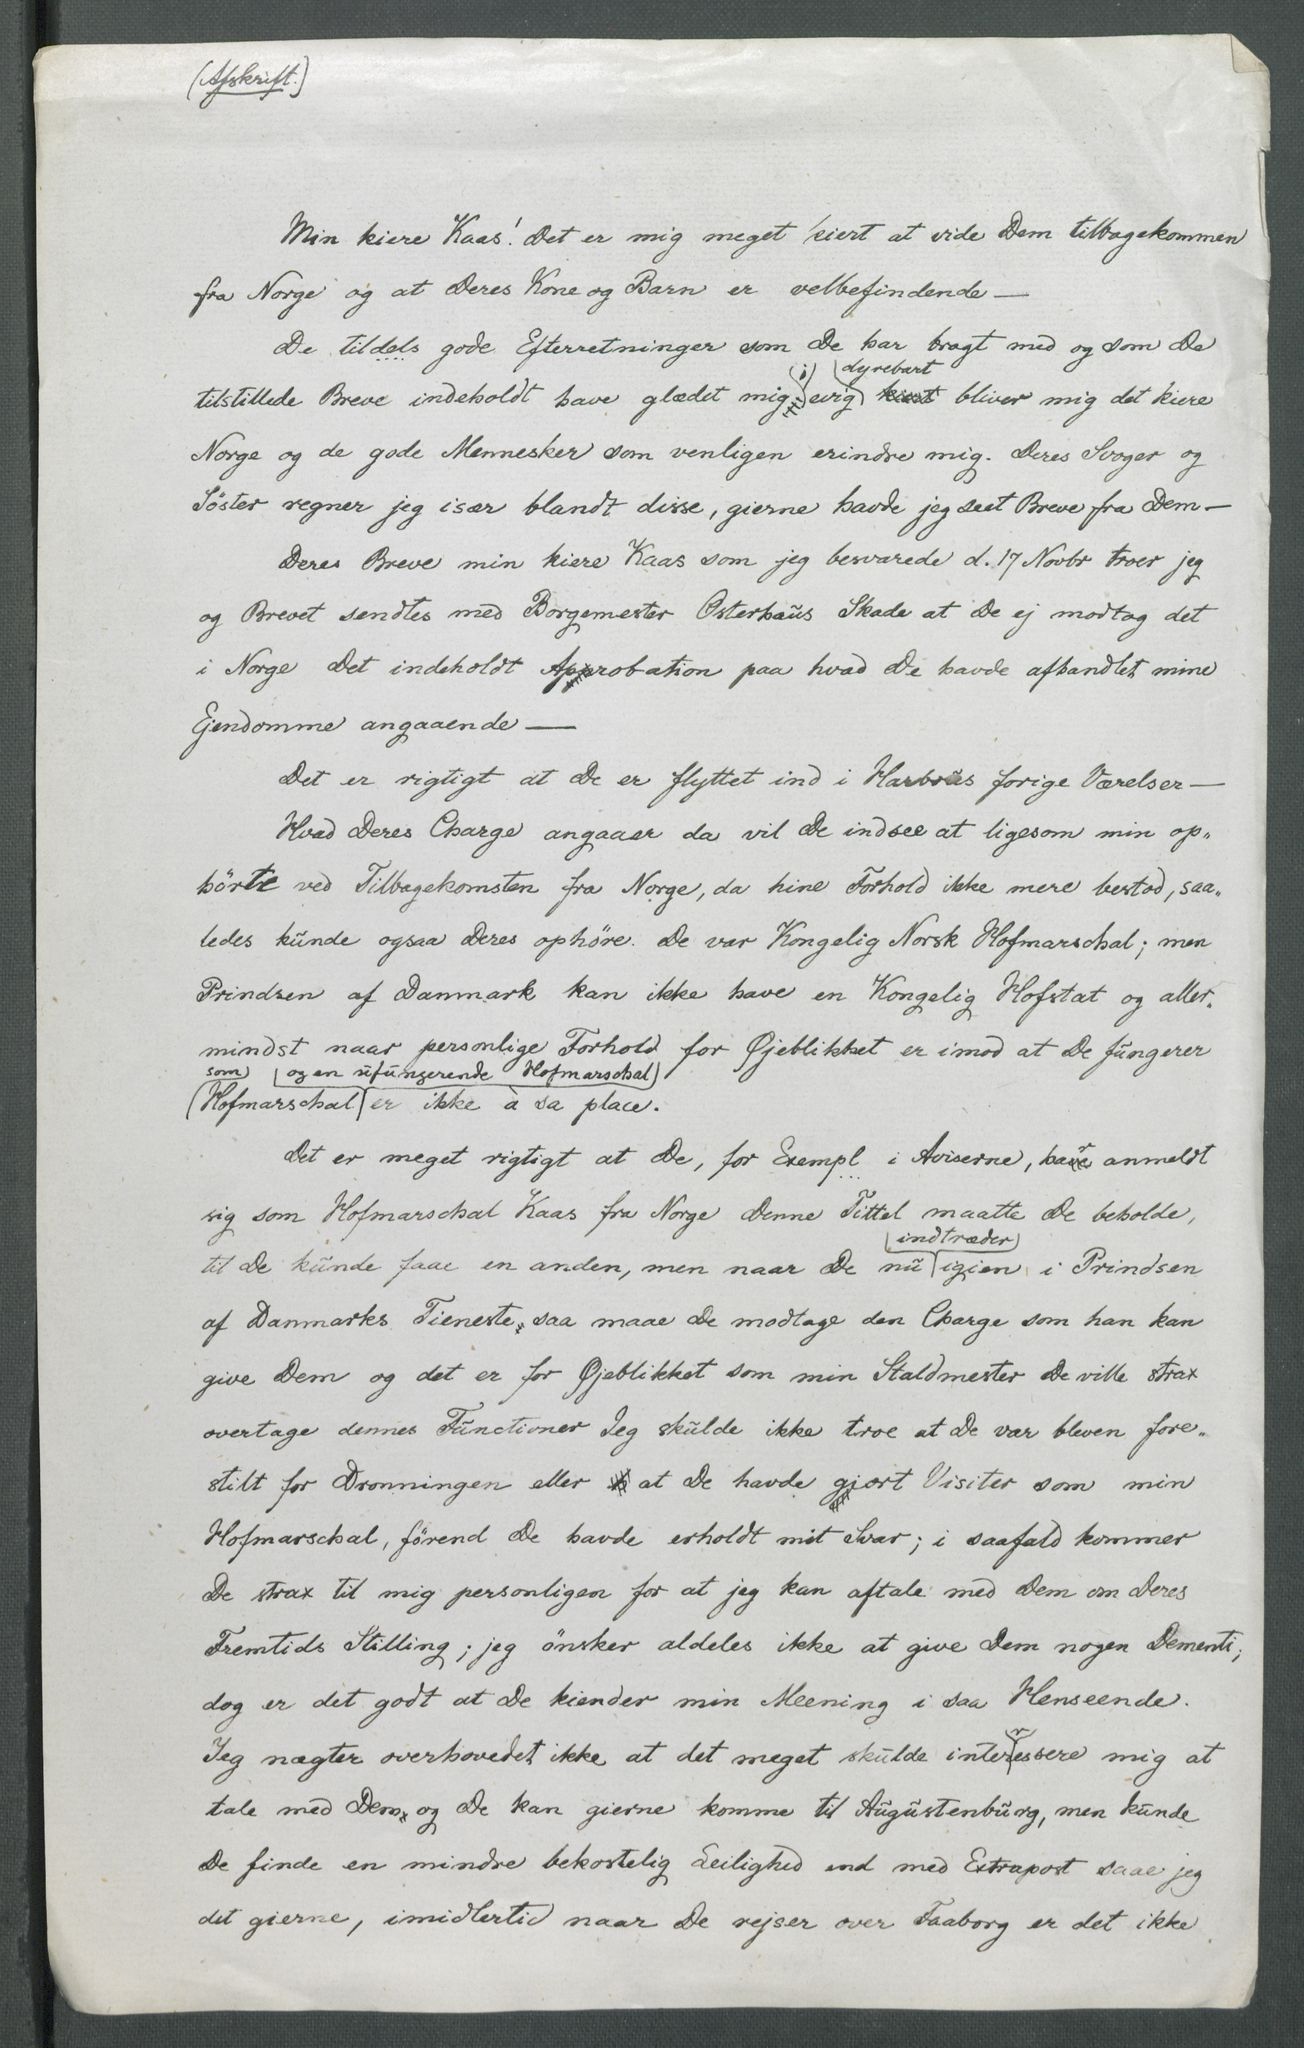 (Afskrift.)
Min kiere Kaas! Det er mig meget kiert at vide Dem tilbagekommen
fra Norge og at Deres Kone og Barn er velbefindende —
De tildels gode Efterretninger som De har bragt med og som De
(i) (dyrebart
tilstillede Breve indeholdt have glædet mig evig kiert bliver mig det kiere
Norge og de gode Mennesker som venligen erindre mig. Deres Svoger og
Söster regner jeg især blandt disse, gierne havde jeg seet Breve fra Dem —
Deres Breve min kiere Kaas som jeg besvarede d. 17 Novbr troer jeg
og Brevet sendtes med Borgemester Osterhaus Skade at De ej modtog det
i Norge Det indeholdt Approbation paa hvad De havde afhandlet mine
Ejendomme angaaende —
Det er rigtigt at De er flyttet ind i Harbous forige Værelser —
Hvad Deres Charge angaaer da vil De indsee at ligesom min op„
hörte ved Tilbagekomsten fra Norge, da hine Forhold ikke mere bestod, saa„
ledes kunde ogsaa Deres ophöre. De var Kongelig Norsk Hofmarschal; men
Prindsen af Danmark kan ikke have en Kongelig Hofstat og aller„
mindst naar personlige Forhold for Øjeblikket er imod at De fungerer
som) (og en ufungerende Hofmarschal)
(Hofmarschal) er ikke à sa place.
Det er meget rigtigt at De, for Exempl i Aviserne, har anmeldt
sig som Hofmarschal Kaas fra Norge Denne Tittel maatte De beholde,
(indtræder)
til De kunde faae en anden, men naar De nu igien i Prindsen
af Danmarks Tieneste, saa maae De modtage den Charge som han kan
give Dem og det er for Øjeblikket som min Staldmester De ville strax
overtage dennes Functioner Jeg skulde ikke troe at De var bleven fore„
stilt for Dronningen eller at De havde gjort Visiter som min
Hofmarschal, förend De havde erholdt mit Svar; i saafald kommer
De strax til mig personligen for at jeg kan aftale med Dem om Deres
Fremtids Stilling; jeg önsker aldeles ikke at give Dem nogen Dementi;
dog er det godt at De kiender min Meening i saa Henseende.
Jeg nægter overhovedet ikke at det meget skulde interressere mig at
tale med Dem, og De kan gierne komme til Augustenburg, men kunde
De finde en mindre bekostelig Leilighed end med Extrapost saae jeg
det gierne, imidlertid naar De rejser over Faaborg er det ikke